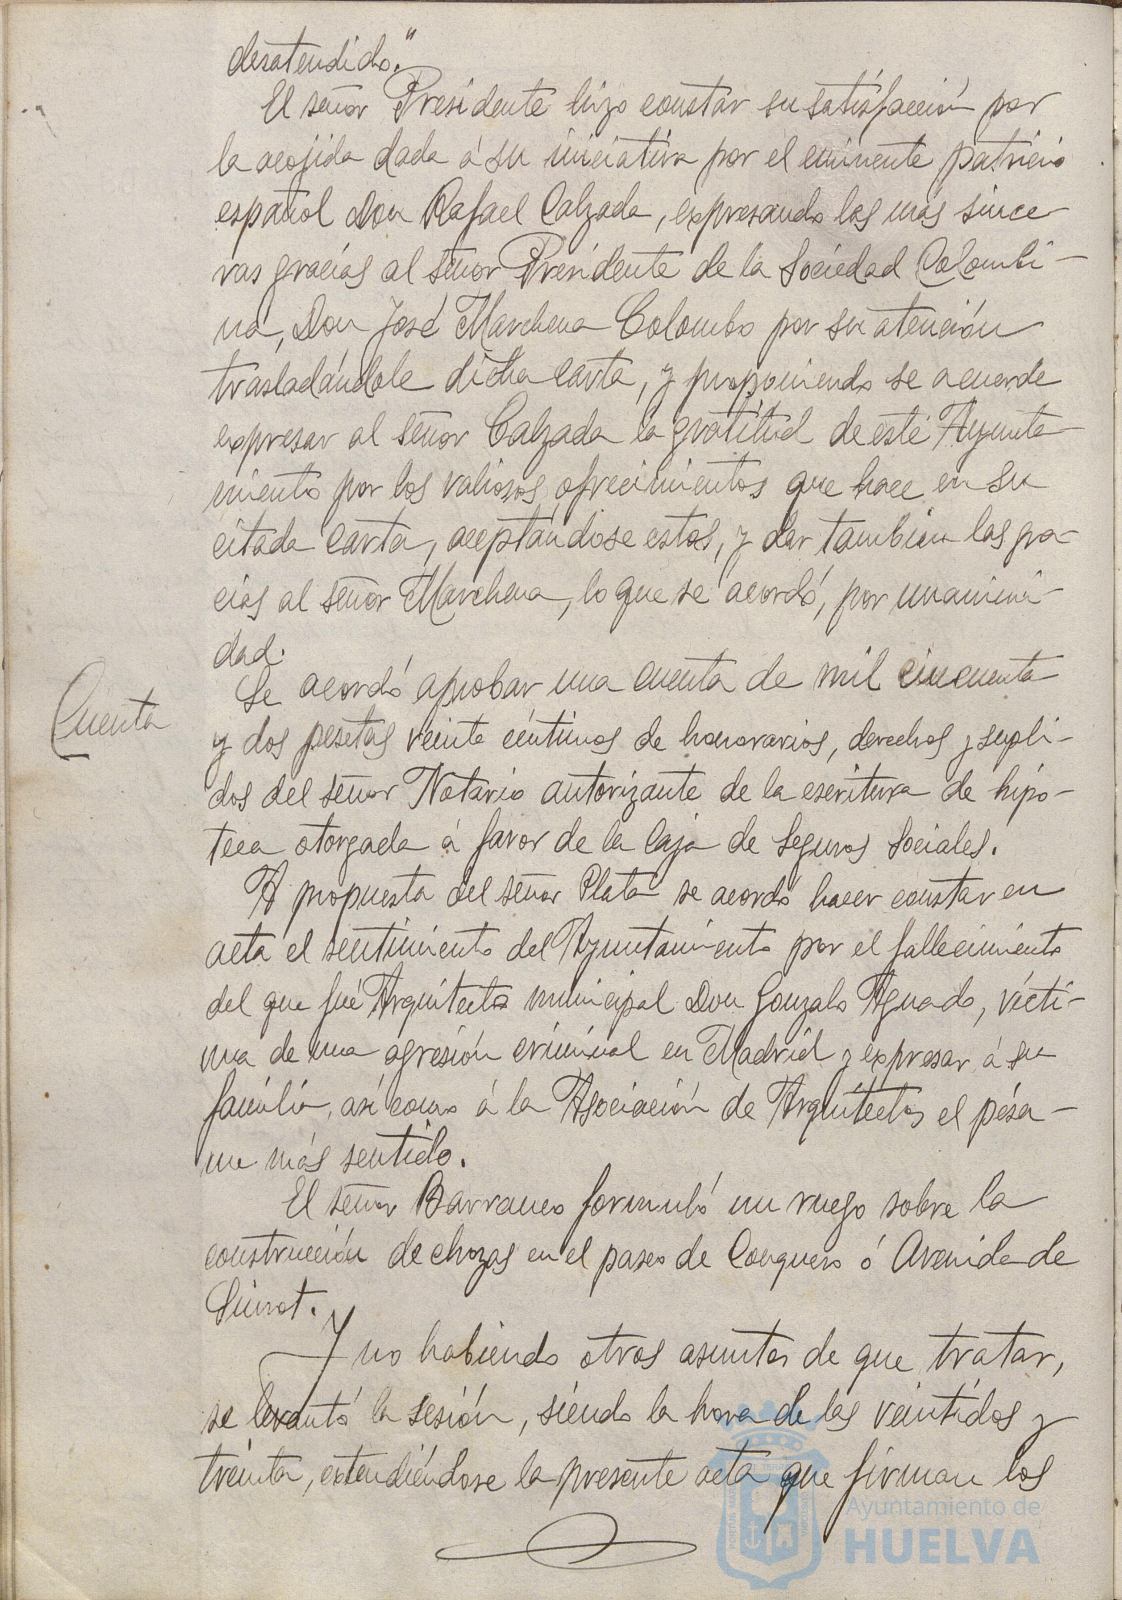 desatendido."
El señor Presidente hizo constar su satisfacción por
la acojida dada á su iniciativa por el eminente patricio
español Don Rafael Calzada, expresando las más since-
ras gracias al señor Presidente de la Sociedad Colombi-
na, Don José Marchena Colombo por su atención
trasladándole dicha carta, y proponiendo se acuerde
expresar al señor Calzada la gratitud de este Ayunta-
miento por los valiosos ofrecimientos que hace en su
citada carta, aceptándose estos, y dar tambien las gra-
cias al señor Marchena, lo que se acordó, por unanimi-
dad.
Cuenta
Se acordó aprobar una cuenta de mil cincuenta
y dos pesetas veinte céntimos de honorarios, derechos y supli-
dos del señor Notario autorizante de la escritura de hipo-
teca otorgada á favor de la Caja de Seguros Sociales.
A propuesta del señor Plata se acordó hacer constar en
acta el sentimiento del Ayuntamiento por el fallecimiento
del que fué Arquitecto municipal Don Gonzalo Aguado, vícti-
ma de una agresión criminal en Madrid y expresar á su
familia, asi como á la Asociación de Arquitectos el pésa-
me más sentido.
El señor Barranco formuló un ruego sobre la
construcción de chozas en el paseo de Conquero ó Avenida de
Siurot.
Y no habiendo otros asuntos de que tratar,
se levantó la sesión, siendo la hora de las veintidos y
treinta, extendiéndose la presente acta que firman los
Ayuntamiento de
HUELVA